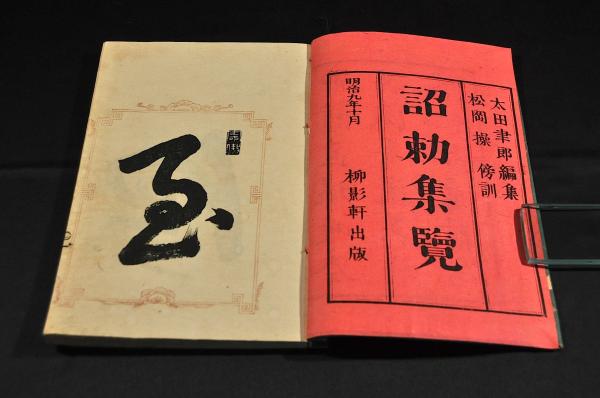 太田聿郎編集
松岡操傍訓
詔勅集覽
明治九年十月
柳影軒出版
至